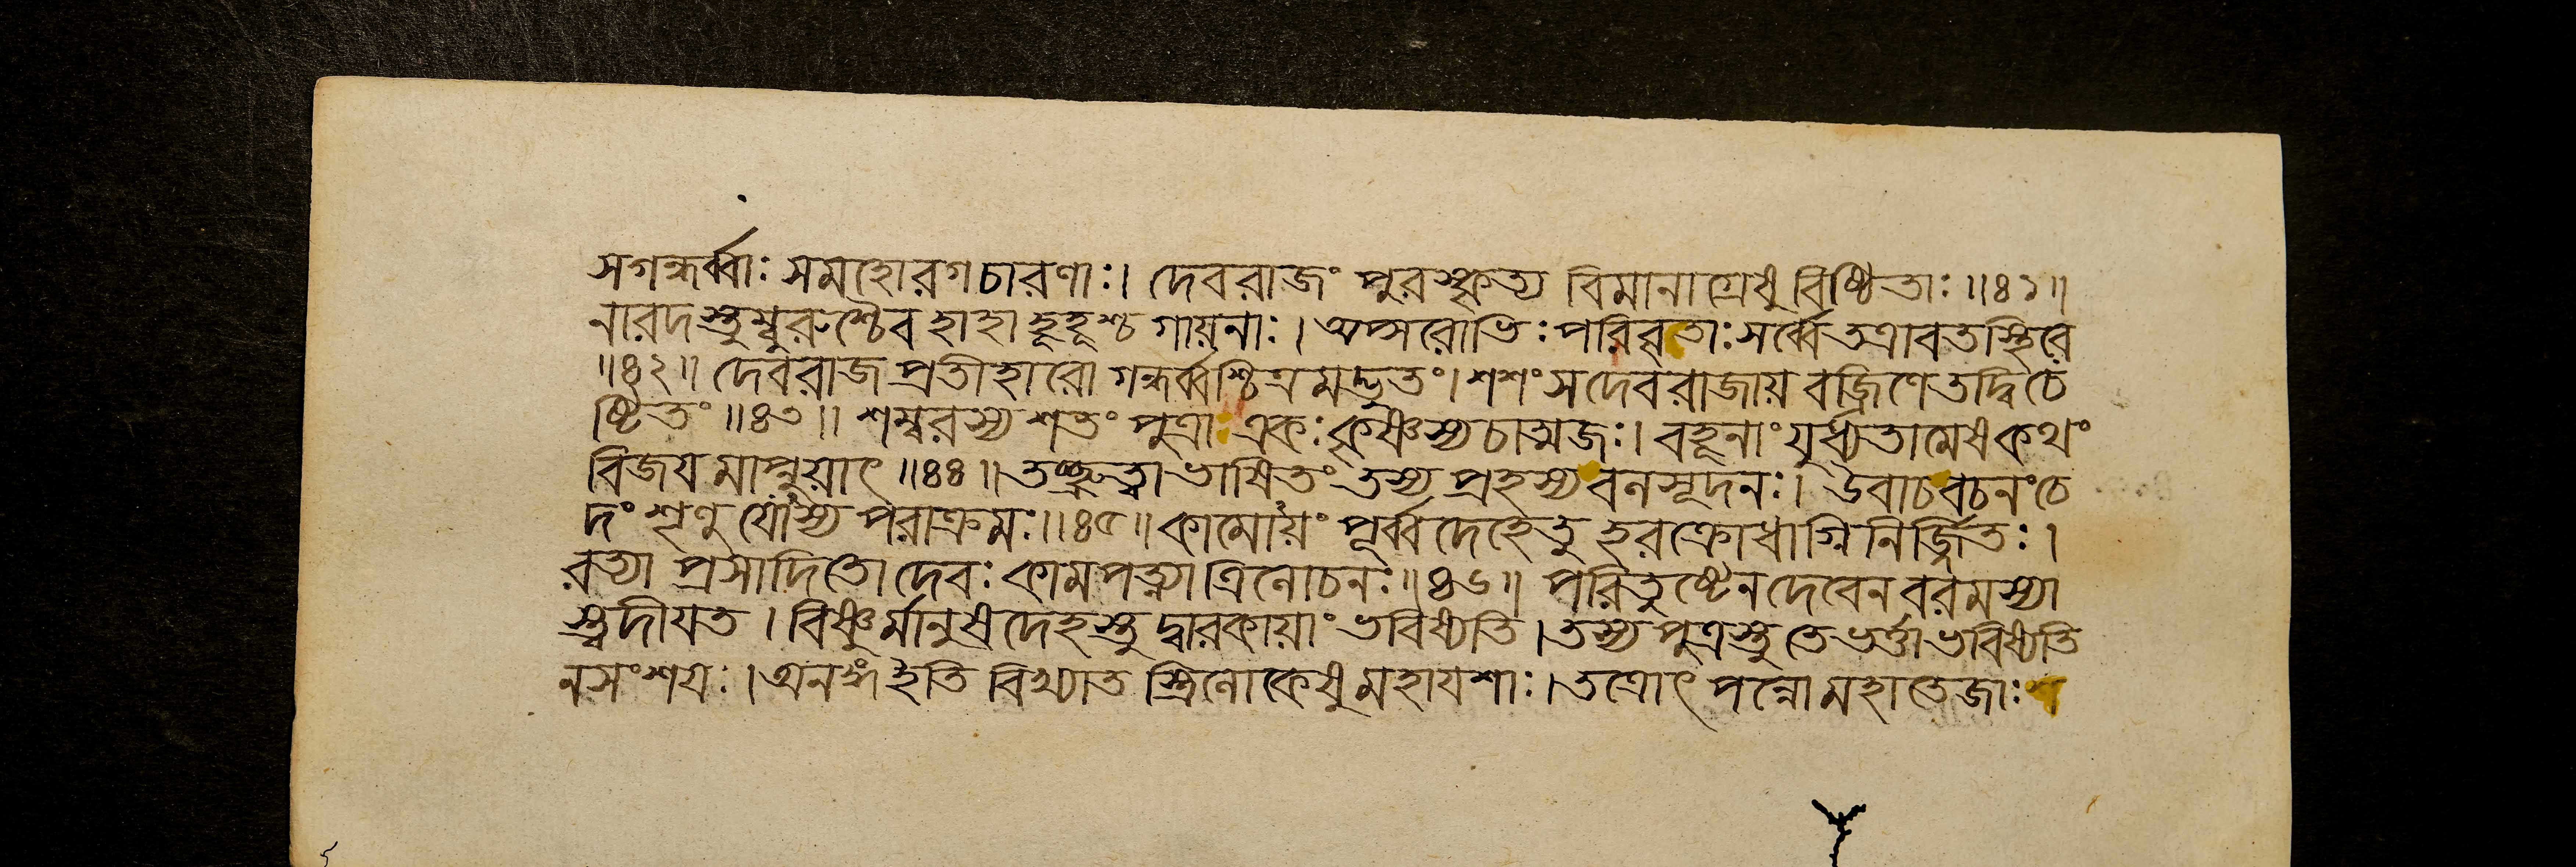 সগন্ধর্ব্বাঃ সমহোরগচারণাঃ। দেবরাজং পুরস্কৃত্য বিমানাগ্রেষু বিষ্ঠিতাঃ॥৪১॥
নারদস্তুম্বুরুশ্চৈব হাহাহূহূশ্চ গায়নাঃ। অপ্সরোভিঃ পরিবৃতাঃ সর্ব্বে তত্রাবতস্থিরে
॥৪২॥ দেবরাজ প্রতীহারো গন্ধর্ব্বশ্চিত্রমদ্ভুতং। শশংস দেবরাজায় বজ্রিণে তদ্বিচে
ষ্টিতং॥৪৩॥ শম্বরস্য শতং পুত্রা একঃ কৃষ্ণস্য চাত্মজঃ। বহূনাং যুধ্যতামেষ কথং
বিজয মাপ্নুয়াৎ॥৪৪॥ তচ্ছ্রুত্বা ভাষিতং তস্য প্রহস্য বলসূদনঃ। উবাচ বচনং চে
দং শৃণু যোস্য পরাক্রমঃ॥৪৫॥ কামোয়ং পূর্ব্বদেহে তু হরক্রোধাগ্নি নির্জ্জিতঃ।
রত্যা প্রসাদিতো দেবঃ কামপত্ন্যা ত্রিলোচনঃ॥৪৬॥ পরিতুষ্টেন দেবেন বরমস্যা
স্ত্বদীযত। বিষ্ণুর্মানুষ দেহস্তু দ্বারকায়াং ভবিষ্যতি। তস্য পুত্রস্তু তে ভর্ত্তা ভবিষ্যতি
ন সংশযঃ। অনঙ্গ ইতি বিখ্যাত স্ত্রিলোকেষু মহাযশাঃ। তত্রোৎ পন্নো মহাতেজাঃ